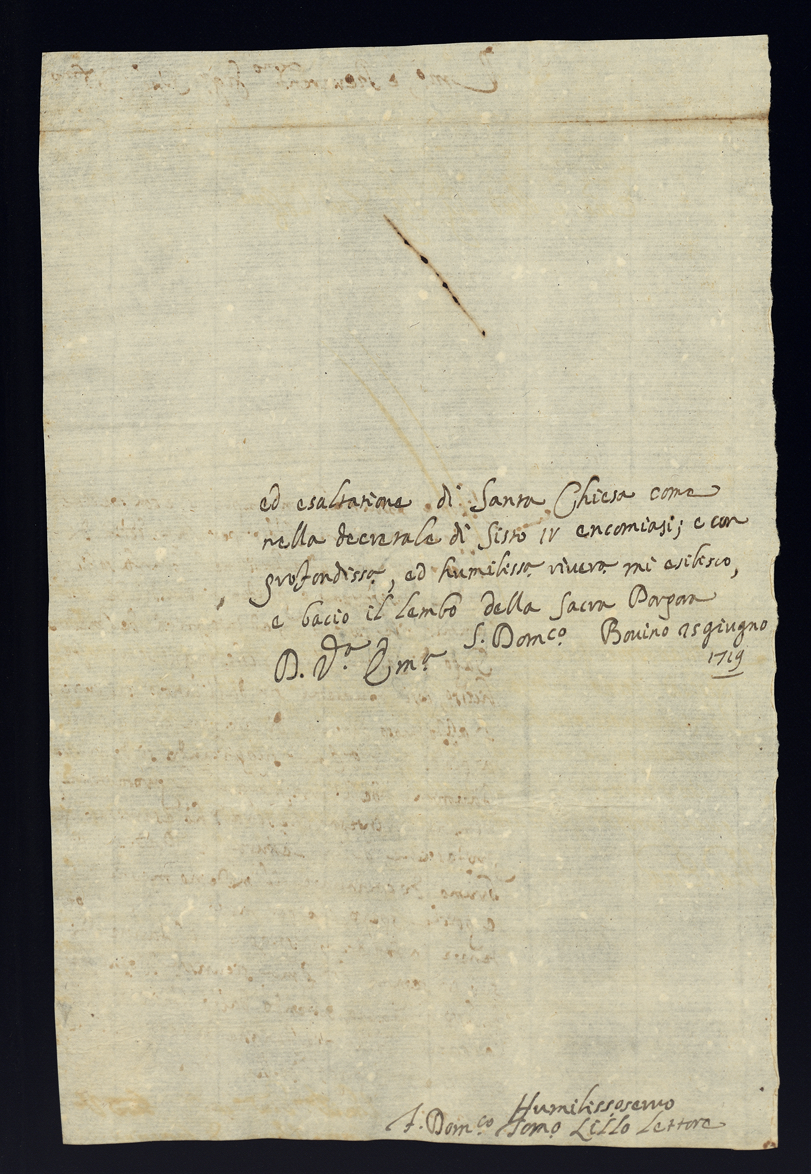 ed esaltatione di Santa Chiesa come
nella decretale di Sisto IV encomiasi; e con
profondissa, ed humilissa rivera mi esibisco,
e bacio il lembo della Sacra Porpora
D. Va. Em.a S. Dom.co Bovino 25 giugno
1719
Humilissoservo
F. Dom.co Tomo Lillo Lettore